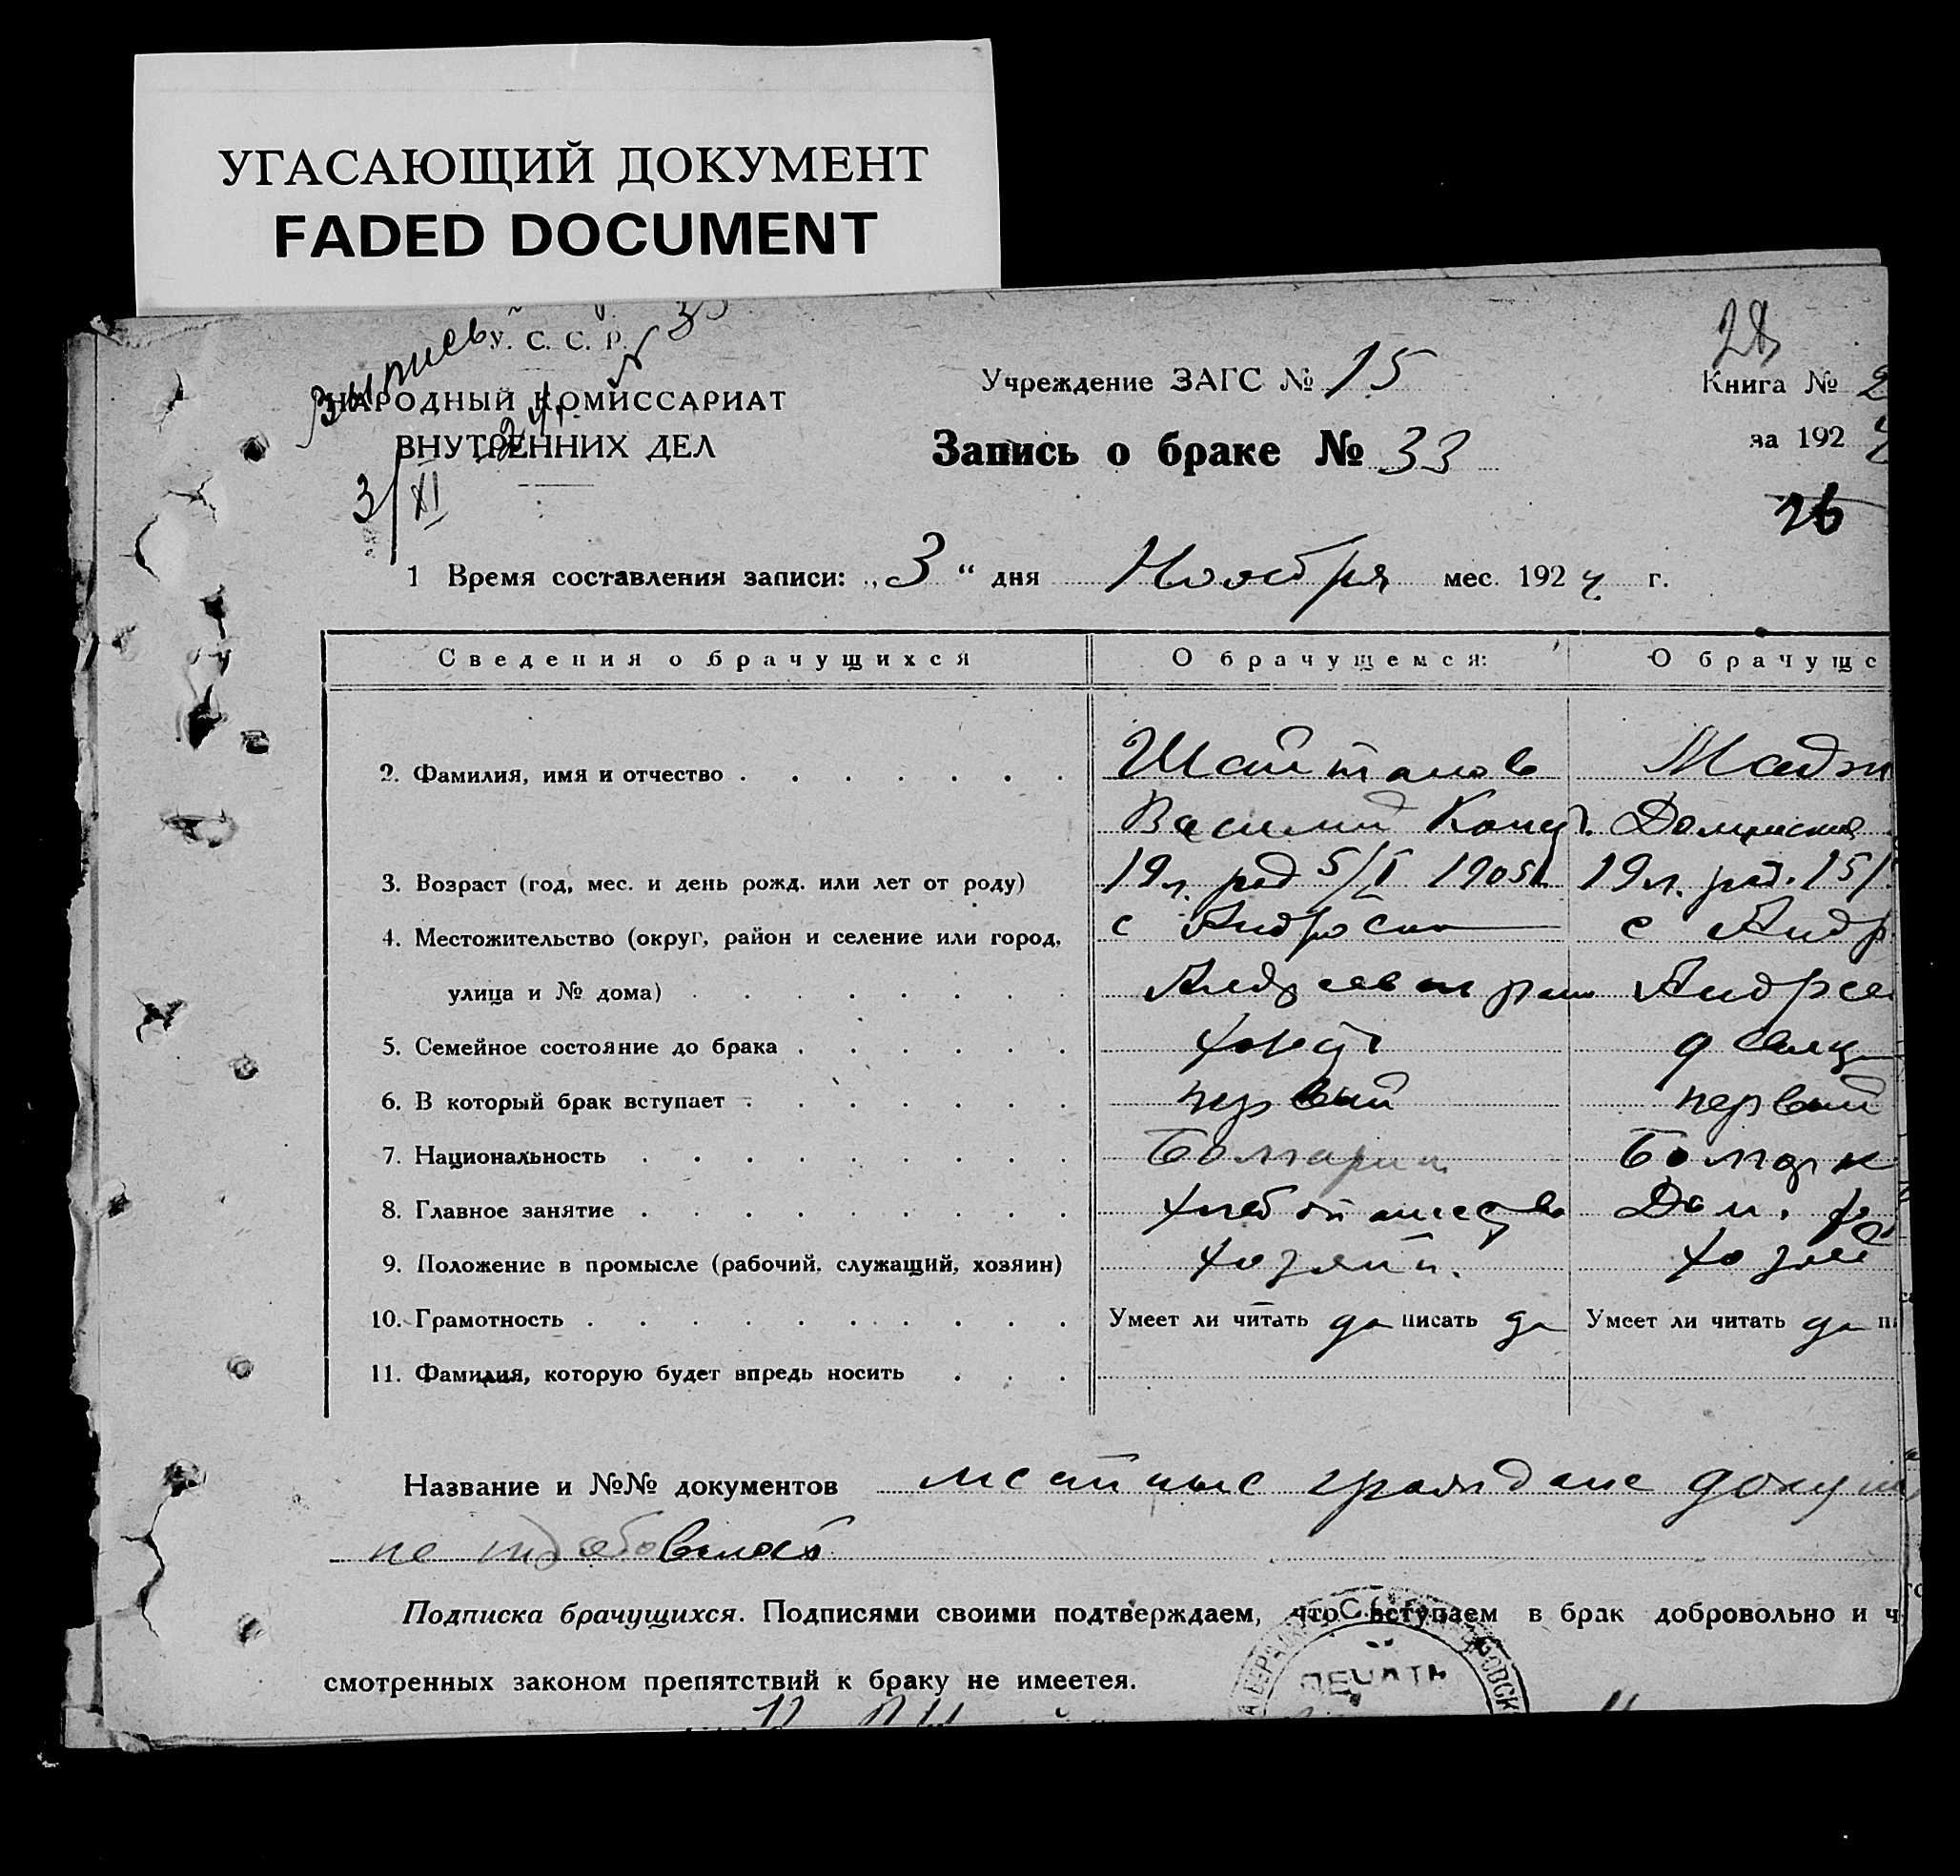 УГАСАЮЩИЙ ДОКУМЕНТ
FADED DOCUMENT
У. С. С. Р.
НАРОДНЫЙ КОМИССАРИАТ
ВНУТРЕННИХ ДЕЛ
3/XI
Учреждение ЗАГС № 15
Запись о браке № 33
28
Книга № 2
за 1924
26
1 Время составления записи: „3“ дня Ноября мес. 1924 г.
Сведения о брачущихся О брачущемся: О брачущс
2. Фамилия, имя и отчество Шайтанов Мадж
Василий Конст. Домникия
3. Возраст (год, мес. и день рожд. или лет от роду) 19 л. род 5/I 1905 19 л. род. 15/
4. Местожительство (округ, район и селение или город, с Андровка с Андр
улица и № дома) Андреевск райо Андрее
5. Семейное состояние до брака холост девиц
6. В который брак вступает первый первый
7. Национальность Болгарин Болгарк
8. Главное занятие хлебопашество Дом. хо
9. Положение в промысле (рабочий, служащий, хозяин) хозяин. хозяй
10. Грамотность Умеет ли читать да писать да Умеет ли читать да п
11. Фамилия, которую будет впредь носить
Название и №№ документов местные граждане докум
не требовалось
Подписка брачущихся. Подписями своими подтверждаем, что вступаем в брак добровольно и ч
смотренных законом препятствий к браку не имеетея.
ПЕЧАТЬ